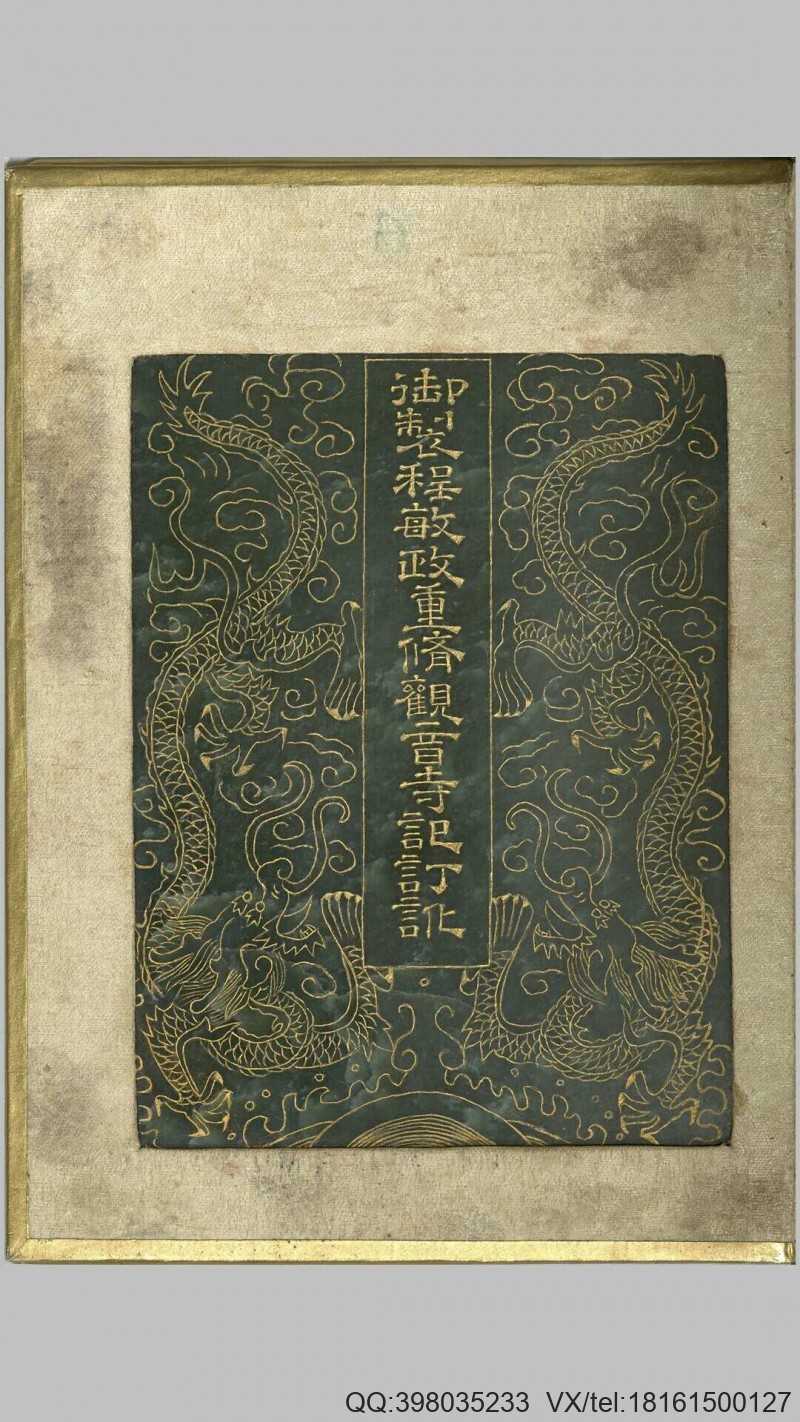 御製程敏政重脩觀音寺記訂訛
QQ:398035233 VX/tel:18161500127